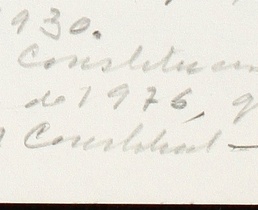 930.
Constituem
de 1976, q
Constituct-